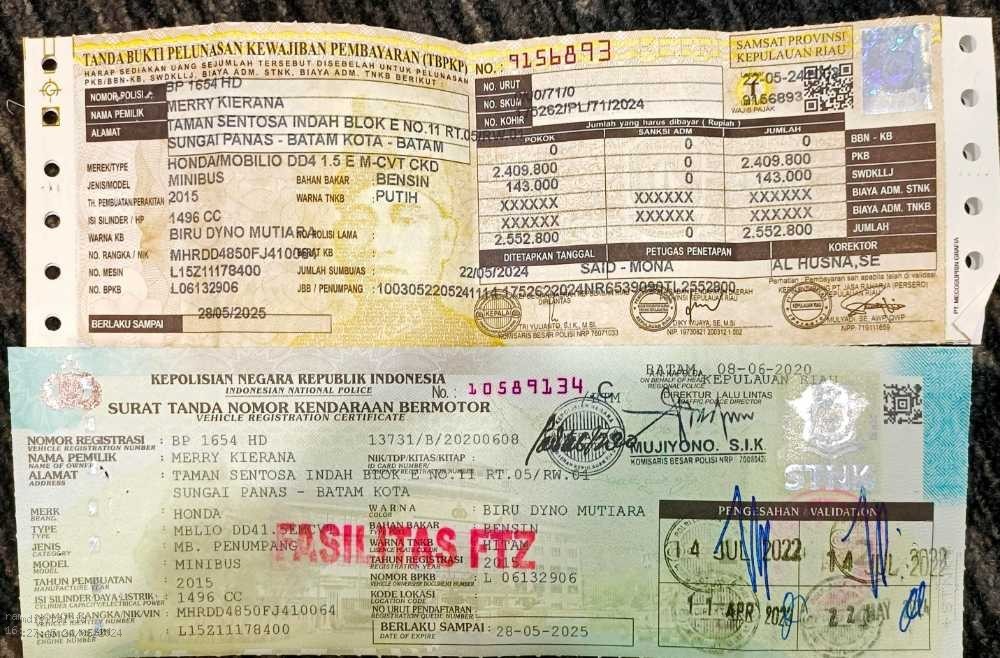 TANDA BUKTI PELUNASAN KEWAJIBAN PEMBAYARAN (TBPKP)
HARAP SEDIAKAN UANG SEJUMLAH TERSEBUT DISEBELAH UNTUK PELUNASAN
PKB/BBN-KB, SWDKLLJ, BIAYA ADM. STNK, BIAYA ADM. TNKB BERIKUT :
NO.: 9156893
SAMSAT PROVINSI
KEPULAUAN RIAU
22-05-24
9156893
WAJIB PAJAK
NOMOR POLISI BP 1654 HD
NAMA PEMILIK MERRY KIERANA
ALAMAT TAMAN SENTOSA INDAH BLOK E NO.11 RT.05/RW.04
SUNGAI PANAS - BATAM KOTA - BATAM
MEREK/TYPE HONDA/MOBILIO DD4 1.5 E M-CVT CKD
JENIS/MODEL MINIBUS BAHAN BAKAR : BENSIN
TH. PEMBUATAN/PERAKITAN 2015 WARNA TNKB : PUTIH
ISI SILINDER / HP 1496 CC
WARNA KB BIRU DYNO MUTIARA NO. POLISI LAMA :
NO. RANGKA / NIK MHRDD4850FJ410064
NO. MESIN L15Z11178400 JUMLAH SUMBU/AS
NO. BPKB L06132906 JBB / PENUMPANG :
BERLAKU SAMPAI 28/05/2025
NO. URUT /71/0
NO. SKUM 5262/PL/71/2024
NO. KOHIR
Jumlah yang harus dibayar ( Rupiah )
POKOK SANKSI ADM JUMLAH
0 0 0 BBN - KB
2.409.800 0 2.409.800 PKB
143.000 0 143.000 SWDKLLJ
XXXXXX XXXXXX XXXXXX BIAYA ADM. STNK
XXXXXX XXXXXX XXXXXX BIAYA ADM. TNKB
2.552.800 0 2.552.800 JUMLAH
DITETAPKAN TANGGAL PETUGAS PENETAPAN KOREKTOR
22/05/2024 SAID - MONA AL HUSNA,SE
1003052205241114 1752622024NR6539090TL2552800
PT. JASA RAHARJA (PERSERO)
KEPALA
TRI YULIANTO, S.I.K, M.SI
KOMISARIS BESAR POLISI NRP 76071033
DIKY WIJAYA, SE, M.SI
MULYADI, SE, AWP, QWP
KEPOLISIAN NEGARA REPUBLIK INDONESIA
INDONESIAN NATIONAL POLICE
SURAT TANDA NOMOR KENDARAAN BERMOTOR
VEHICLE REGISTRATION CERTIFICATE
No.: 10589134 C
BATAM, 08-06-2020
ON BEHALF OF HEAD
REGIONAL POLICE
KEPULAUAN RIAU
DIREKTUR LALU LINTAS
TRAFFIC POLICE DIRECTOR
MUJIYONO. S.I.K
KOMISARIS BESAR POLISI NRP
STNK
NOMOR REGISTRASI : BP 1654 HD 13731/B/20200608
VEHICLE REGISTRATION NUMBER
NAMA PEMILIK : MERRY KIERANA NIK/TDP/KITAS/KITAP :
NAME OF OWNER ID CARD NUMBER/
ALAMAT : TAMAN SENTOSA INDAH BLOK E NO.11 RT.05/RW.04
ADDRESS SUNGAI PANAS - BATAM KOTA
MERK : HONDA WARNA : BIRU DYNO MUTIARA
BRAND COLOR
TYPE BAHAN BAKAR : BENSIN
TYPE
JENIS : MB. PENUMPANG WARNA TNKB : HITAM
CATEGORY
FASILITAS FTZ
MODEL : MINIBUS TAHUN REGISTRASI : 2015
MODEL REGISTRATION YEAR
TAHUN PEMBUATAN : 2015 NOMOR BPKB : L 06132906
MANUFACTURE YEAR VEHICLE OWNERSHIP DOCUMENT NUMBER
ISI SILINDER/DAYA LISTRIK : 1496 CC KODE LOKASI :
CYLINDER CAPACITY/ELECTRICAL POWER LOCATION CODE
NOMOR RANGKA/NIK/VIN : MHRDD4850FJ410064 NO URUT PENDAFTARAN :
REGISTRATION QUEUE NUMBER
NOMOR MESIN : L15Z11178400 BERLAKU SAMPAI : 28-05-2025
ENGINE NUMBER DATE OF EXPIRE
PENGESAHAN / VALIDATION
14 JUL 2022 14 JUL 2022
11 APR 22 MAY